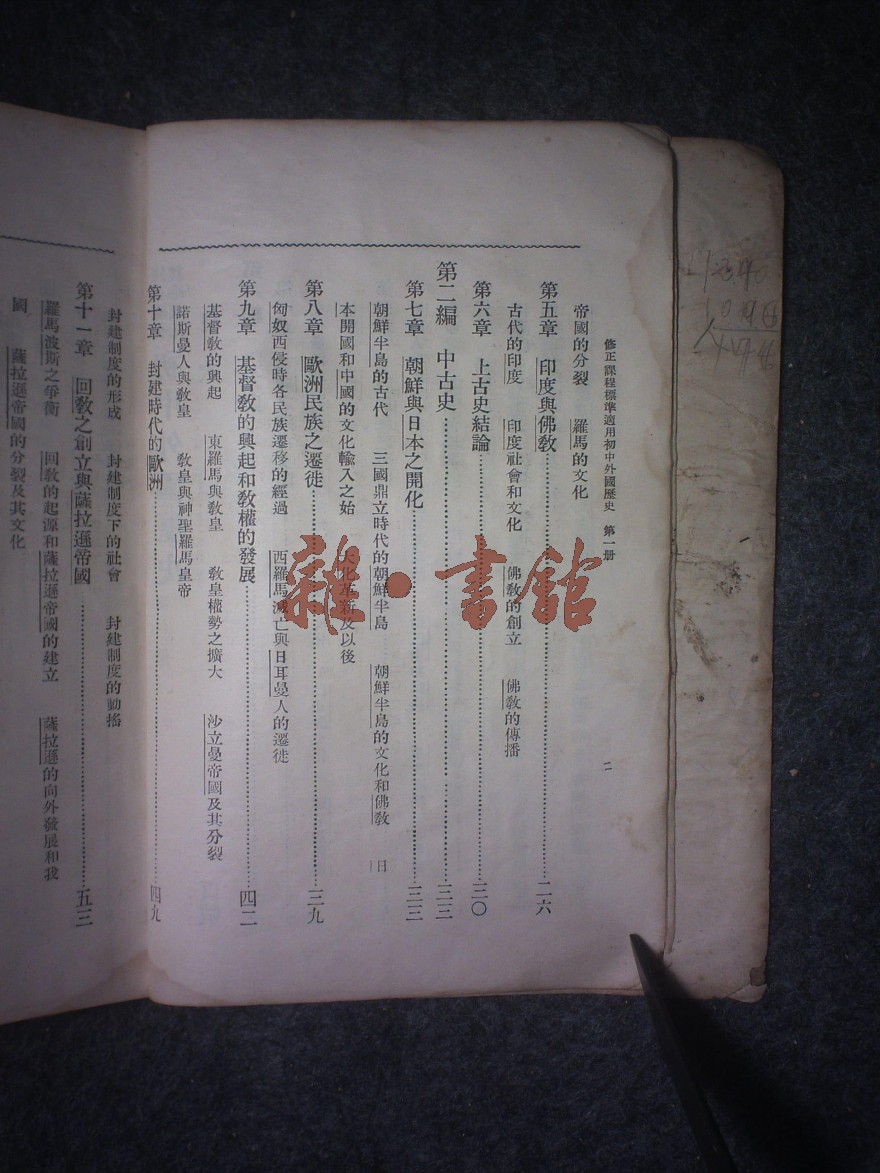 修正課程標準適用初中外國歷史 第一册
二
帝國的分裂 羅馬的文化
第五章 印度與佛教……二六
古代的印度 印度社會和文化 佛教的創立 佛教的傳播
第六章 上古史結論……三〇
第二編 中古史……三三
第七章 朝鮮與日本之開化……三三
朝鮮半島的古代 三國鼎立時代的朝鮮半島 朝鮮半島的文化和佛教 日
本開國和中國的文化輸入之始 大化革新及以後
第八章 歐洲民族之遷徙……三九
匈奴西侵時各民族遷移的經過 西羅馬滅亡與日耳曼人的遷徙
第九章 基督教的興起和教權的發展……四二
基督教的興起 東羅馬與教皇 教皇權勢之擴大 沙立曼帝國及其分裂
諾斯曼人與教皇 教皇與神聖羅馬皇帝
第十章 封建時代的歐洲……四九
封建制度的形成 封建制度下的社會 封建制度的動搖
第十一章 回教之創立與薩拉遜帝國……五三
羅馬波斯之爭衡 回教的起源和薩拉遜帝國的建立 薩拉遜的向外發展和我
國 薩拉遜帝國的分裂及其文化
雜·書館